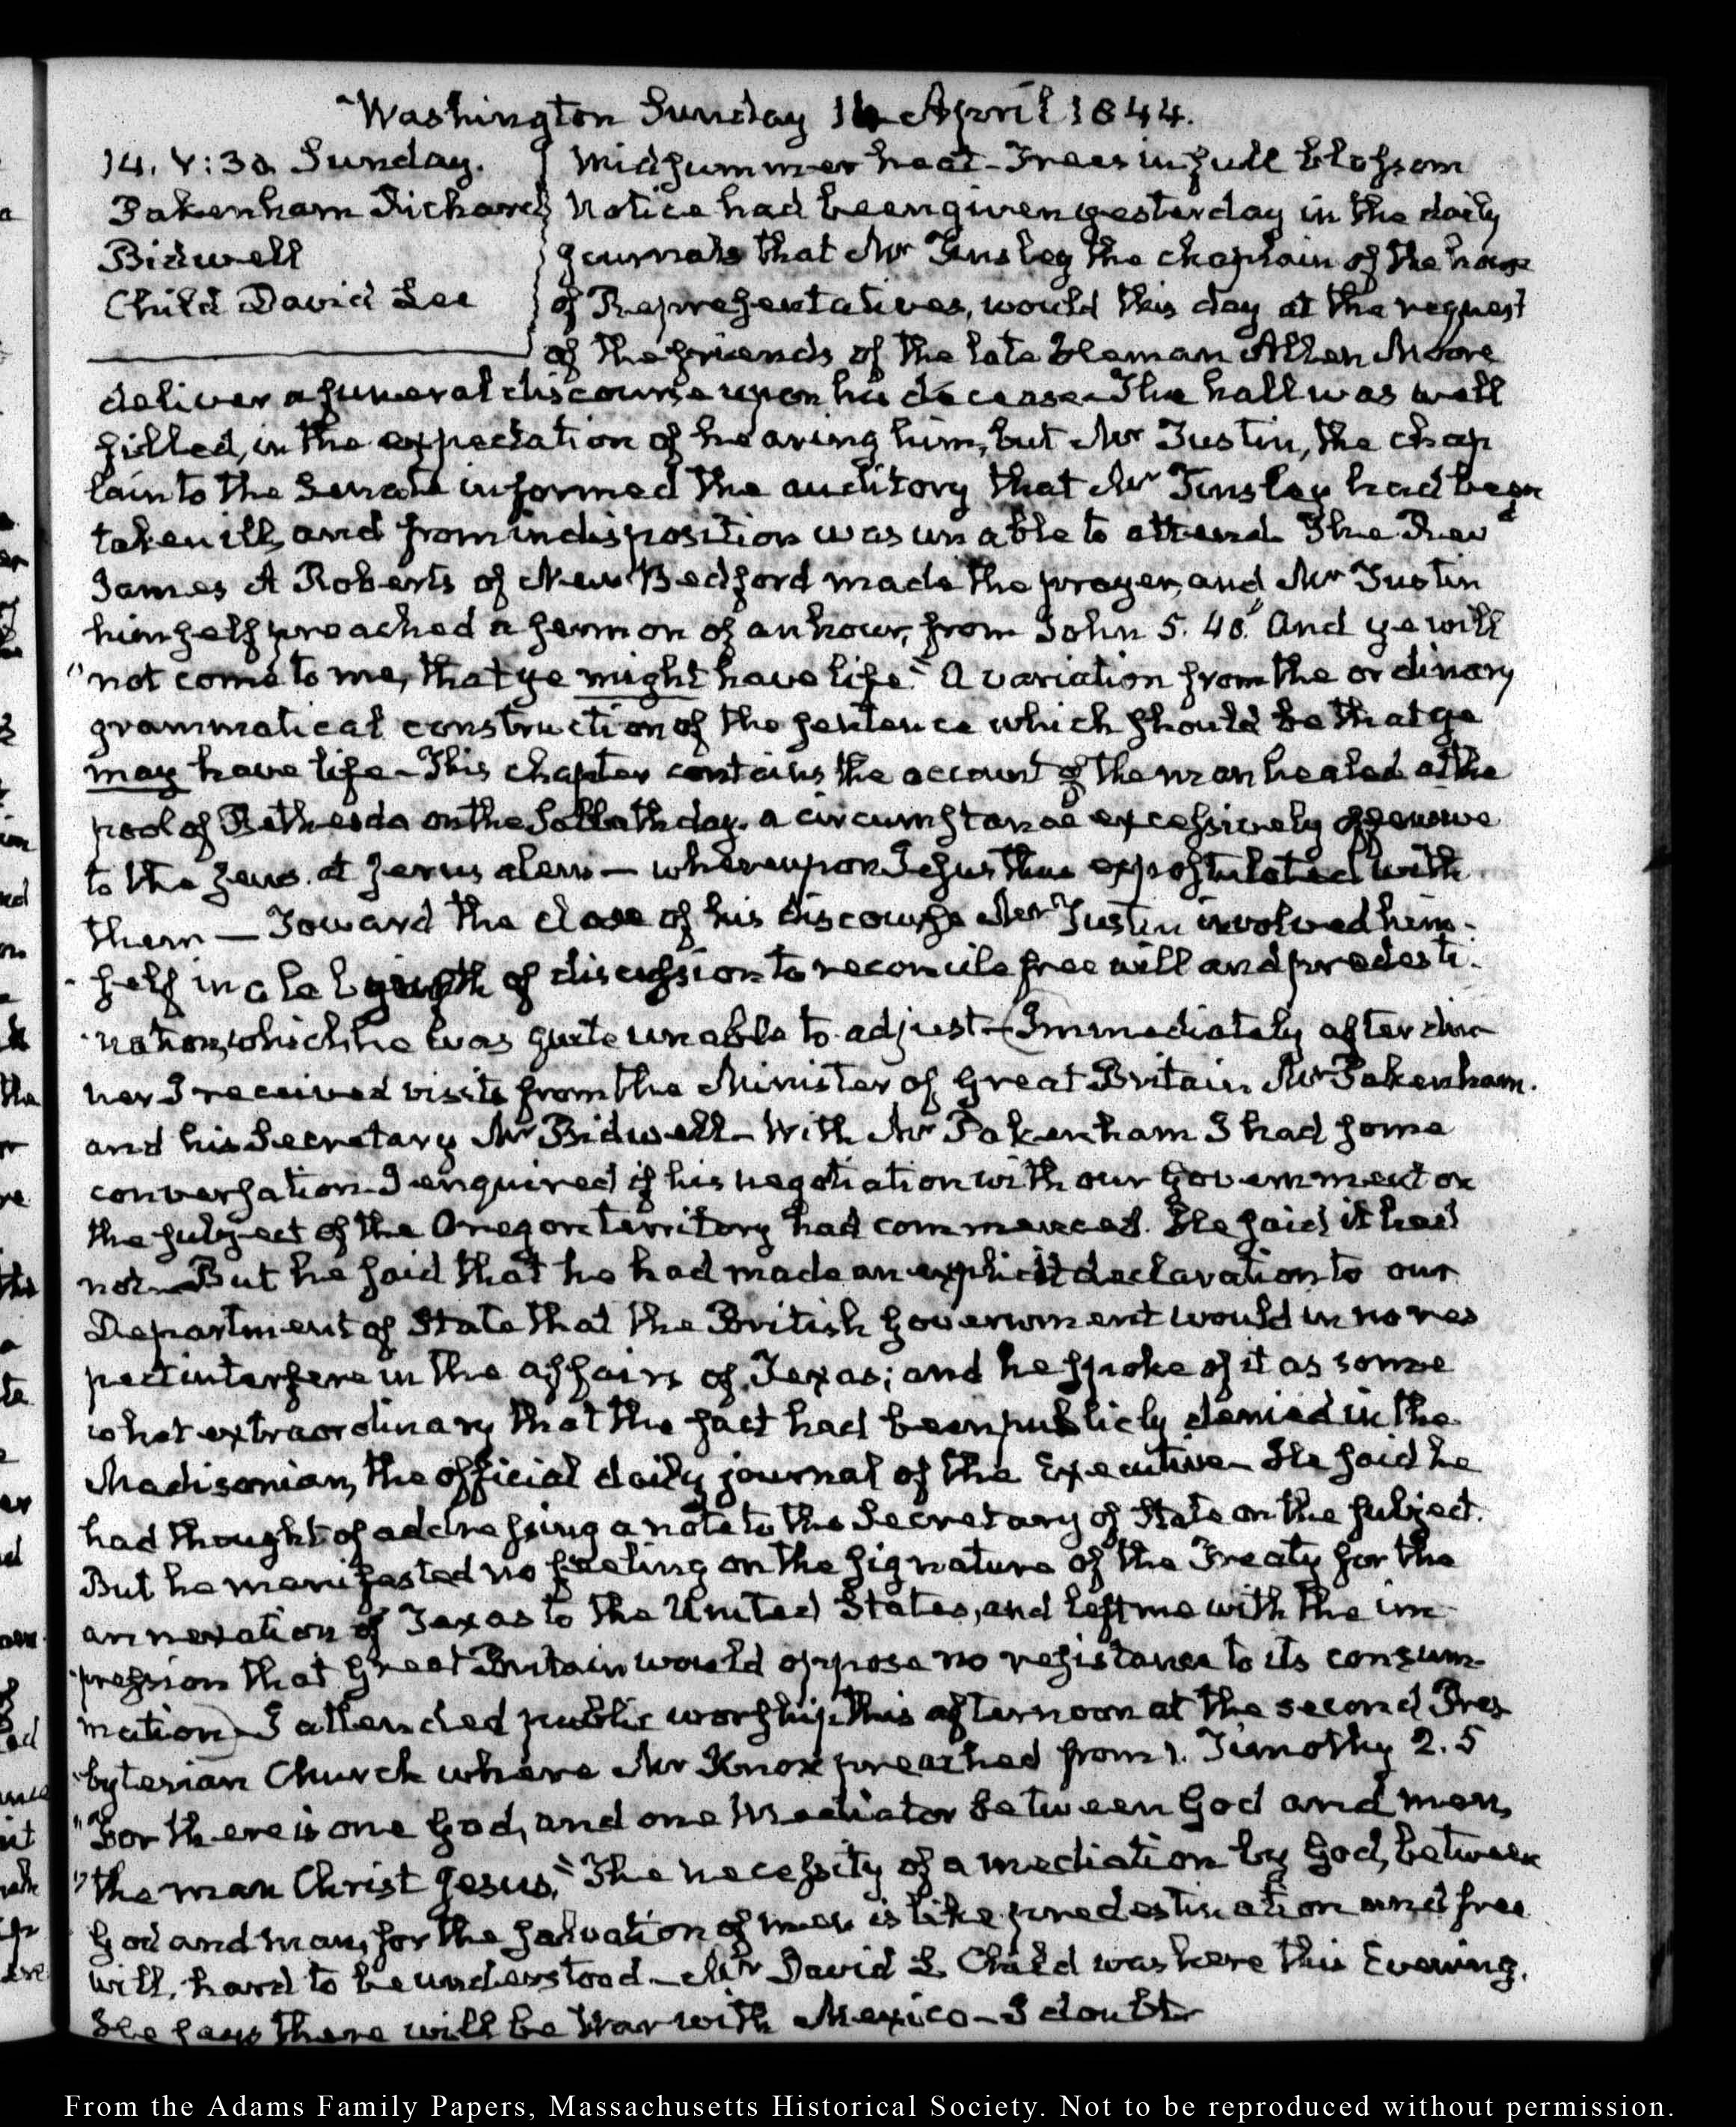 Washington Sunday 14 April 1844.
14. V:30. Sunday.
Pakenham Richard
Bidwell
Child David Lee
Midsummer heat - Trees in full blossom
Notice had been given yesterday in the daily
journals that Mr Tinsley the chaplain of the house
of Representatives, would this day at the request
of the friends of the late Heman Allen Moore
deliver a funeral discourse upon his decease - The hall was well
filled, in the expectation of hearing him, but Mr Tustin, the chap
lain to the Senate informed the auditory that Mr Tinsley had been
taken ill, and from indisposition was unable to attend. The Revd
James A Roberts of New Bedford made the prayer, and Mr Tustin
himself preached a sermon of an hour, from John 5. 40. And ye will
"not come to me, that ye might have life." A variation from the ordinary
grammatical construction of the sentence which should be that ye
may have life - This chapter contains the account of the man healed at the
pool of Bethesda on the Sabbath day. a circumstance excessively offensive
to the Jews at Jerusalem — whereupon Jesus thus expostulated with
them — Toward the close of his discourse Mr Tustin involved him-
self in a labyrinth of discussion to reconcile free will and predesti-
nation, which he was quite unable to adjust - (Immediately after din
ner I received visits from the Minister of Great Britain Mr Pakenham.
and his Secretary Mr Bidwell - With Mr Pakenham I had some
conversation. I enquired if his negotiation with our Government on
the subject of the Oregon territory had commenced. He said it had
not - But he said that he had made an explicit declaration to our
Department of State that the British Government would in no res
pect interfere in the affairs of Texas; and he spoke of it as some
what extraordinary that the fact had been publicly denied in the
Madisonian, the official daily journal of the Executive - He said he
had thought of addressing a note to the Secretary of State on the subject.
But he manifested no feeling on the signature of the Treaty for the
annexation of Texas to the United States, and left me with the im
pression that Great Britain would oppose no resistance to its consum-
mation) - I attended public worship this afternoon at the second Pres
byterian Church where Mr Knox preached from 1. Timothy 2. 5
"For there is one God, and one Mediator between God and men,
"the man Christ Jesus." The necessity of a mediation by God, between
God and man, for the salvation of man is like predestination and free
will, hard to be understood - Mr David L. Child was here this Evening.
He says there will be War with Mexico - I doubt
From the Adams Family Papers, Massachusetts Historical Society. Not to be reproduced without permission.